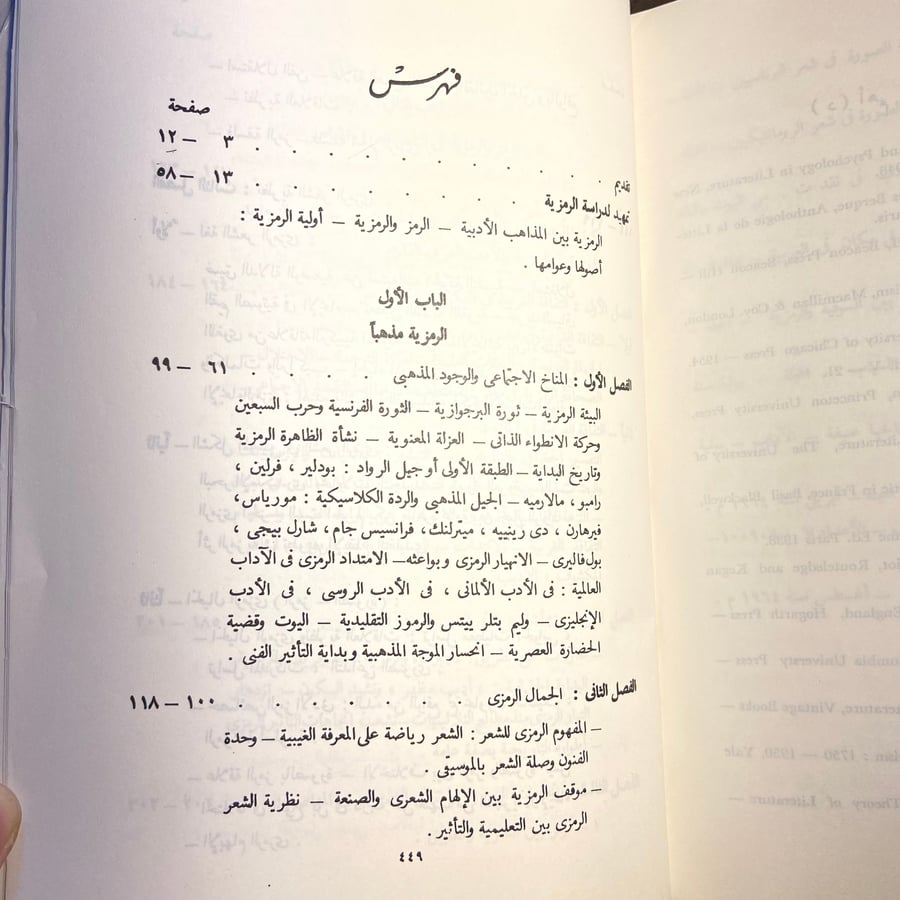 فهرس
صفحة
تقديم . . . . . . . . . ٣ – ١٢
تمهيد لدراسة الرمزية . . . . . . . ١٣ – ٥٨
الرمزية بين المذاهب الأدبية – الرمز والرمزية – أولية الرمزية :
أصولها وعوامها .
الباب الأول
الرمزية مذهباً
الفصل الأول : المناخ الاجتماعى والوجود المذهبى . . . . ٦١ – ٩٩
البيئة الرمزية – ثورة البرجوازية – الثورة الفرنسية وحرب السبعين
وحركة الانطواء الذاتى – العزلة المعنوية – نشأة الظاهرة الرمزية
وتاريخ البداية – الطبقة الأولى أو جيل الرواد : بودلير ، فرلين ،
رامبو ، مالارميه – الجيل المذهبى والردة الكلاسيكية : مورياس ،
فيرهارن ، دى رينييه ، ميترلنك ، فرانسيس جام ، شارل بيجى ،
بول فاليرى – الانهيار الرمزى وبواعثه – الامتداد الرمزى فى الآداب
العالمية : فى الأدب الألمانى ، فى الأدب الروسى ، فى الأدب
الإنجليزى – وليم بتلر ييتس والرموز التقليدية – اليوت وقضية
الحضارة العصرية – انحسار الموجة المذهبية وبداية التأثير الفنى .
الفصل الثانى : الجمال الرمزى . . . . . . . ١٠٠ – ١١٨
– المفهوم الرمزى للشعر : الشعر رياضة على المعرفة الغيبية – وحدة
الفنون وصلة الشعر بالموسيقى .
– موقف الرمزية بين الإلهام الشعرى والصنعة – نظرية الشعر
الرمزى بين التعليمية والتأثير .
٤٤٩